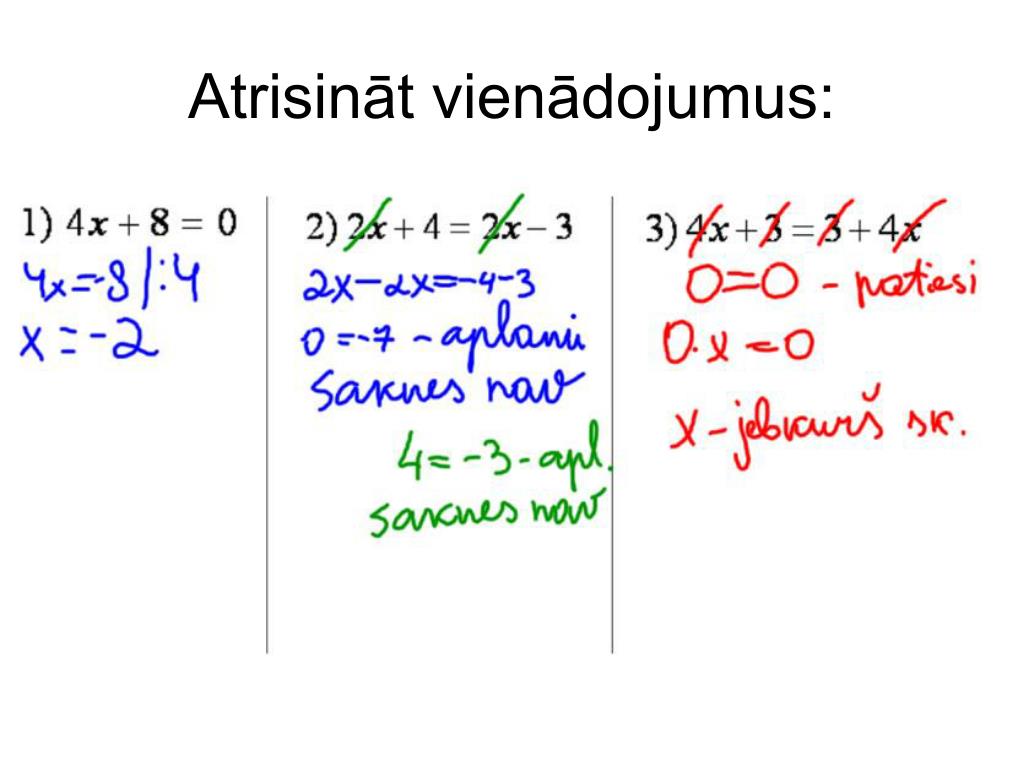 Atrisināt vienādojumus:
1) 4x + 8 = 0
4x = -8 | : 4
x = -2
2) 2x + 4 = 2x – 3
2x - 2x = -4 - 3
0 = -7 - aplami
saknes nav
4 = -3 - apl.
saknes nav
3) 4x + 3 = 3 + 4x
0 = 0 - patiesi
0·x = 0
x - jebkurš sk.